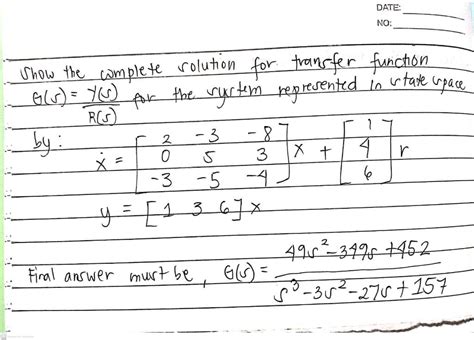 DATE:
NO:
Show the complete solution for transfer function
G(s) = Y(s) for the system represented in state space
R(s)
by:
ẋ = [ 2 -3 -8 ] x + [ 1 ] r
0 5 3 4
-3 -5 -4 6
y = [1 3 6] x
Final answer must be, G(s) = 49s² - 349s + 452
s³ - 3s² - 27s + 157